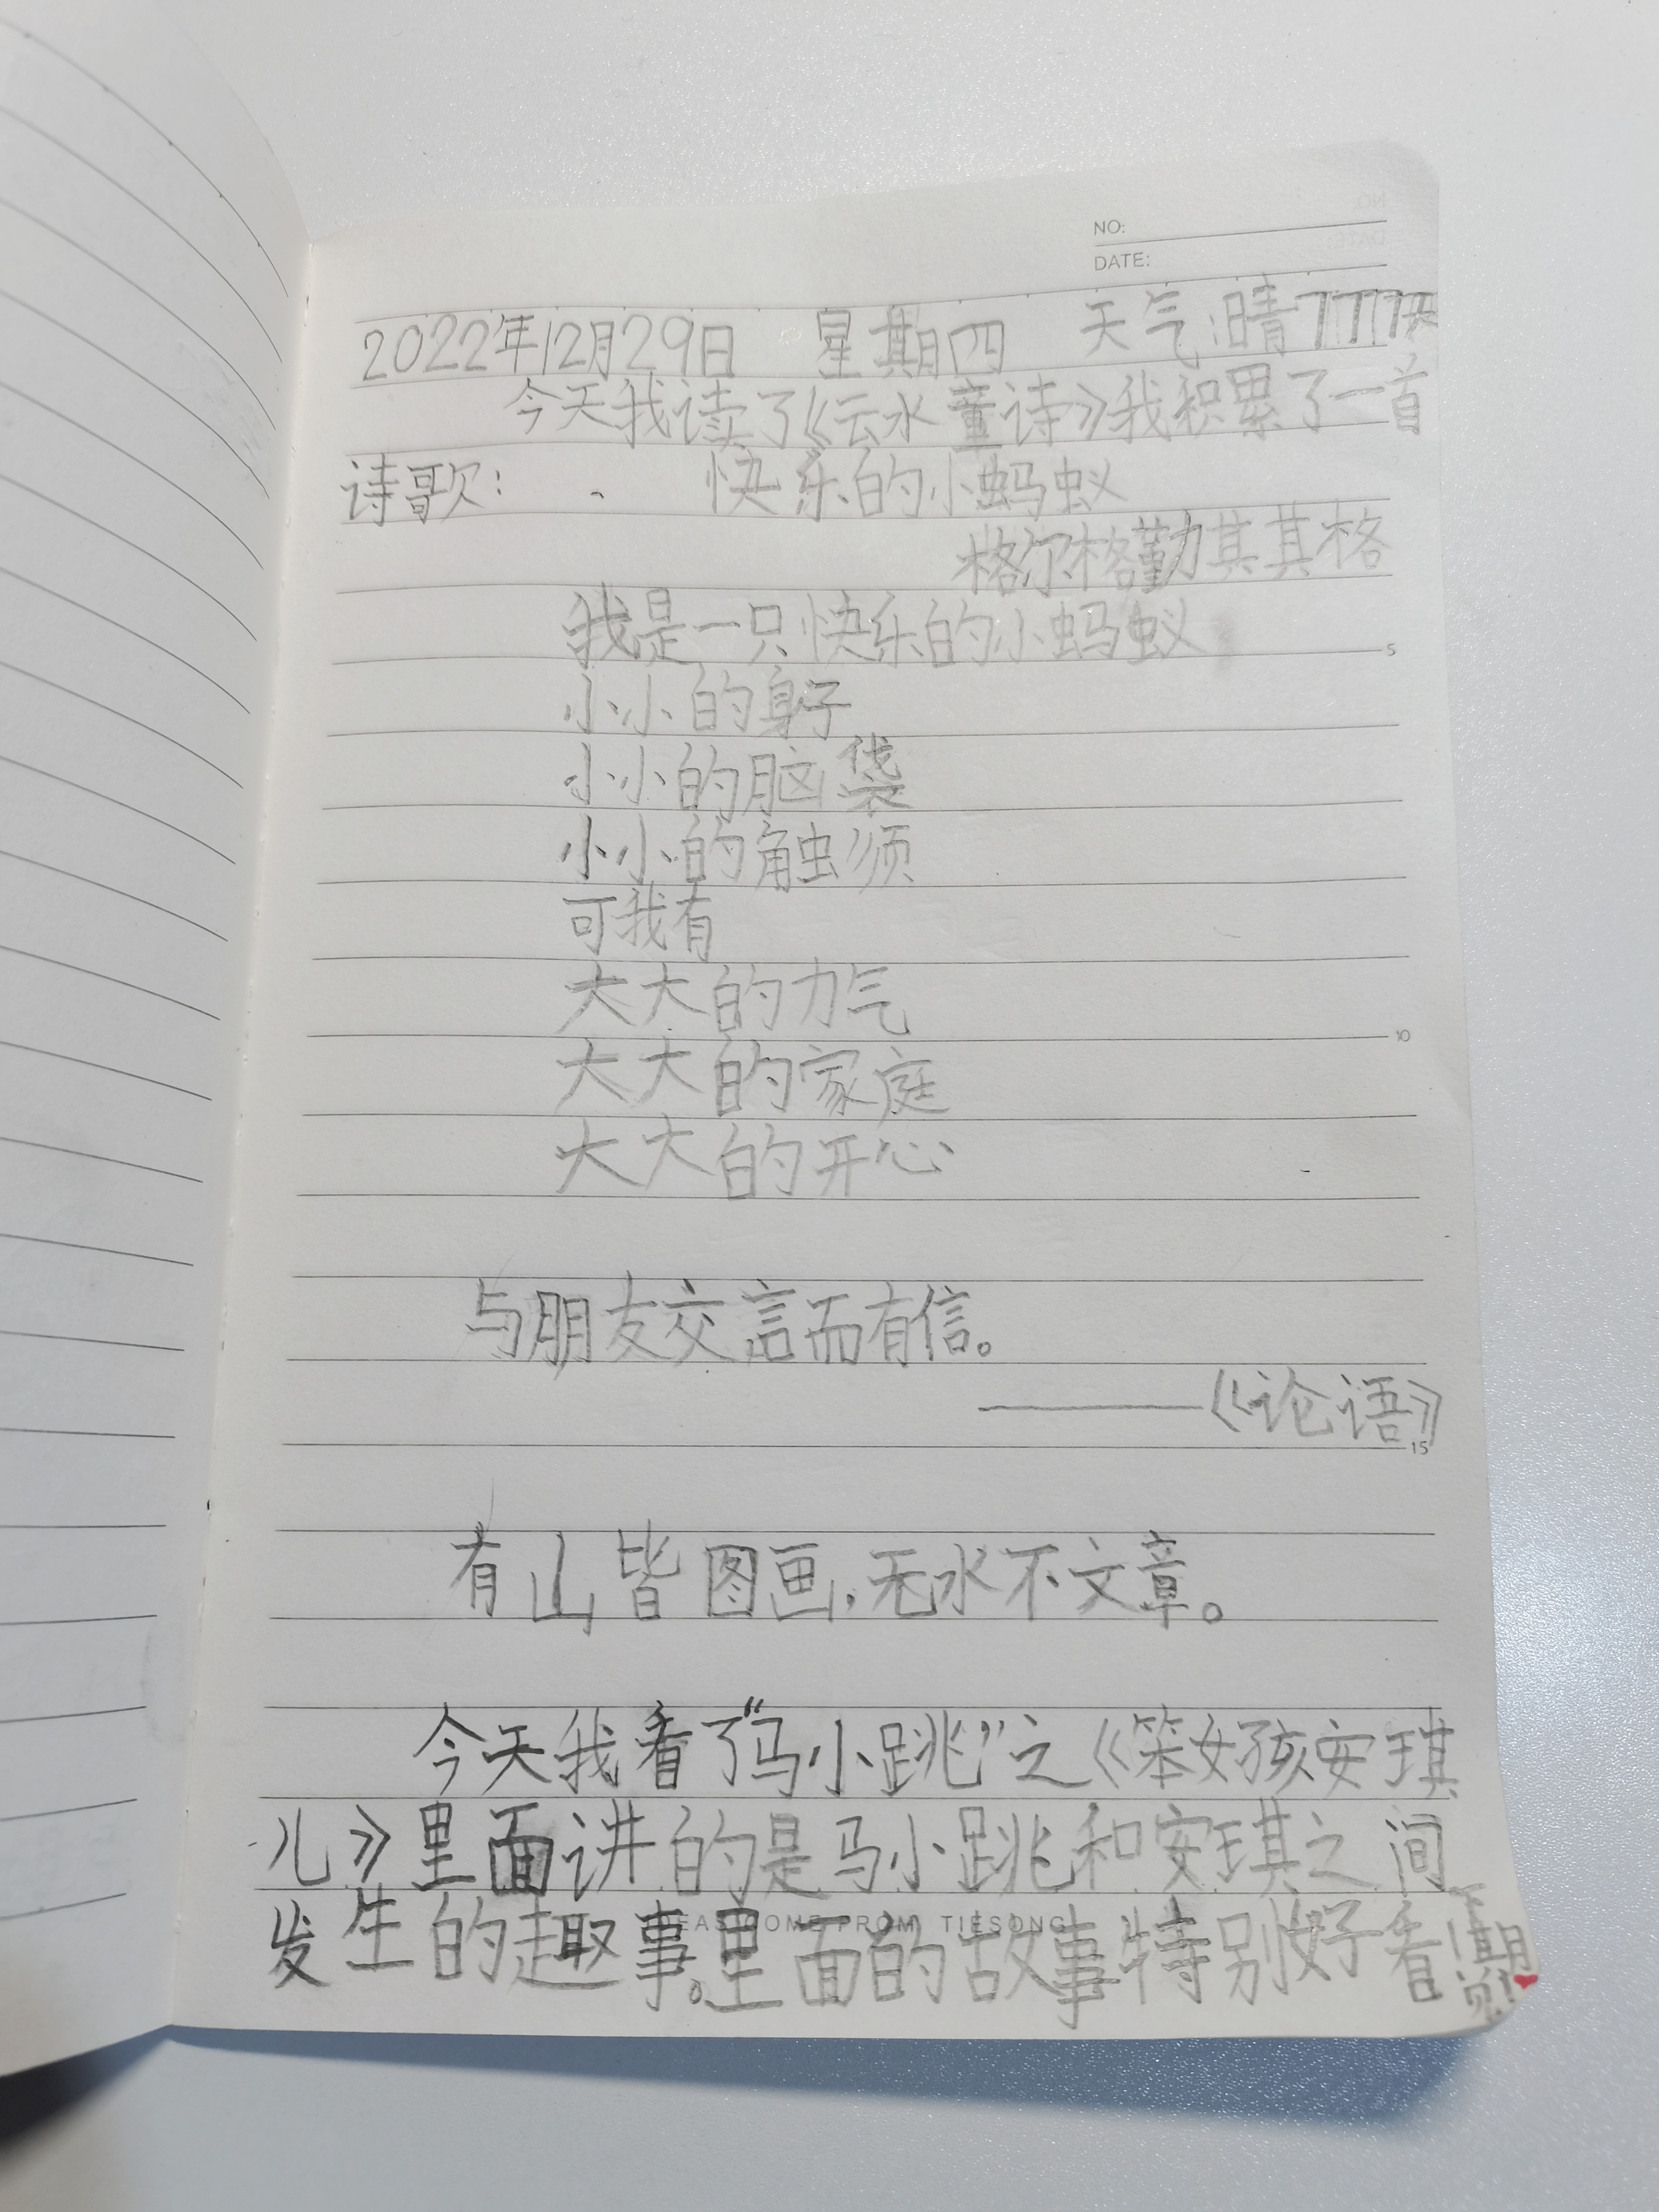 NO:
DATE:
2022年12月29日 星期四 天气:晴 7777天
今天我读了《云水童诗》我积累了一首
诗歌: 快乐的小蚂蚁
格尔格勤其其格
我是一只快乐的小蚂蚁
小小的身子
小小的脑袋
小小的触须
可我有
大大的力气
大大的家庭
大大的开心
与朋友交言而有信。
——《论语》
有山皆图画,无水不文章。
今天我看了“马小跳”之《笨女孩安琪
儿》里面讲的是马小跳和安琪之间
发生的趣事。里面的故事特别好看
5
10
15